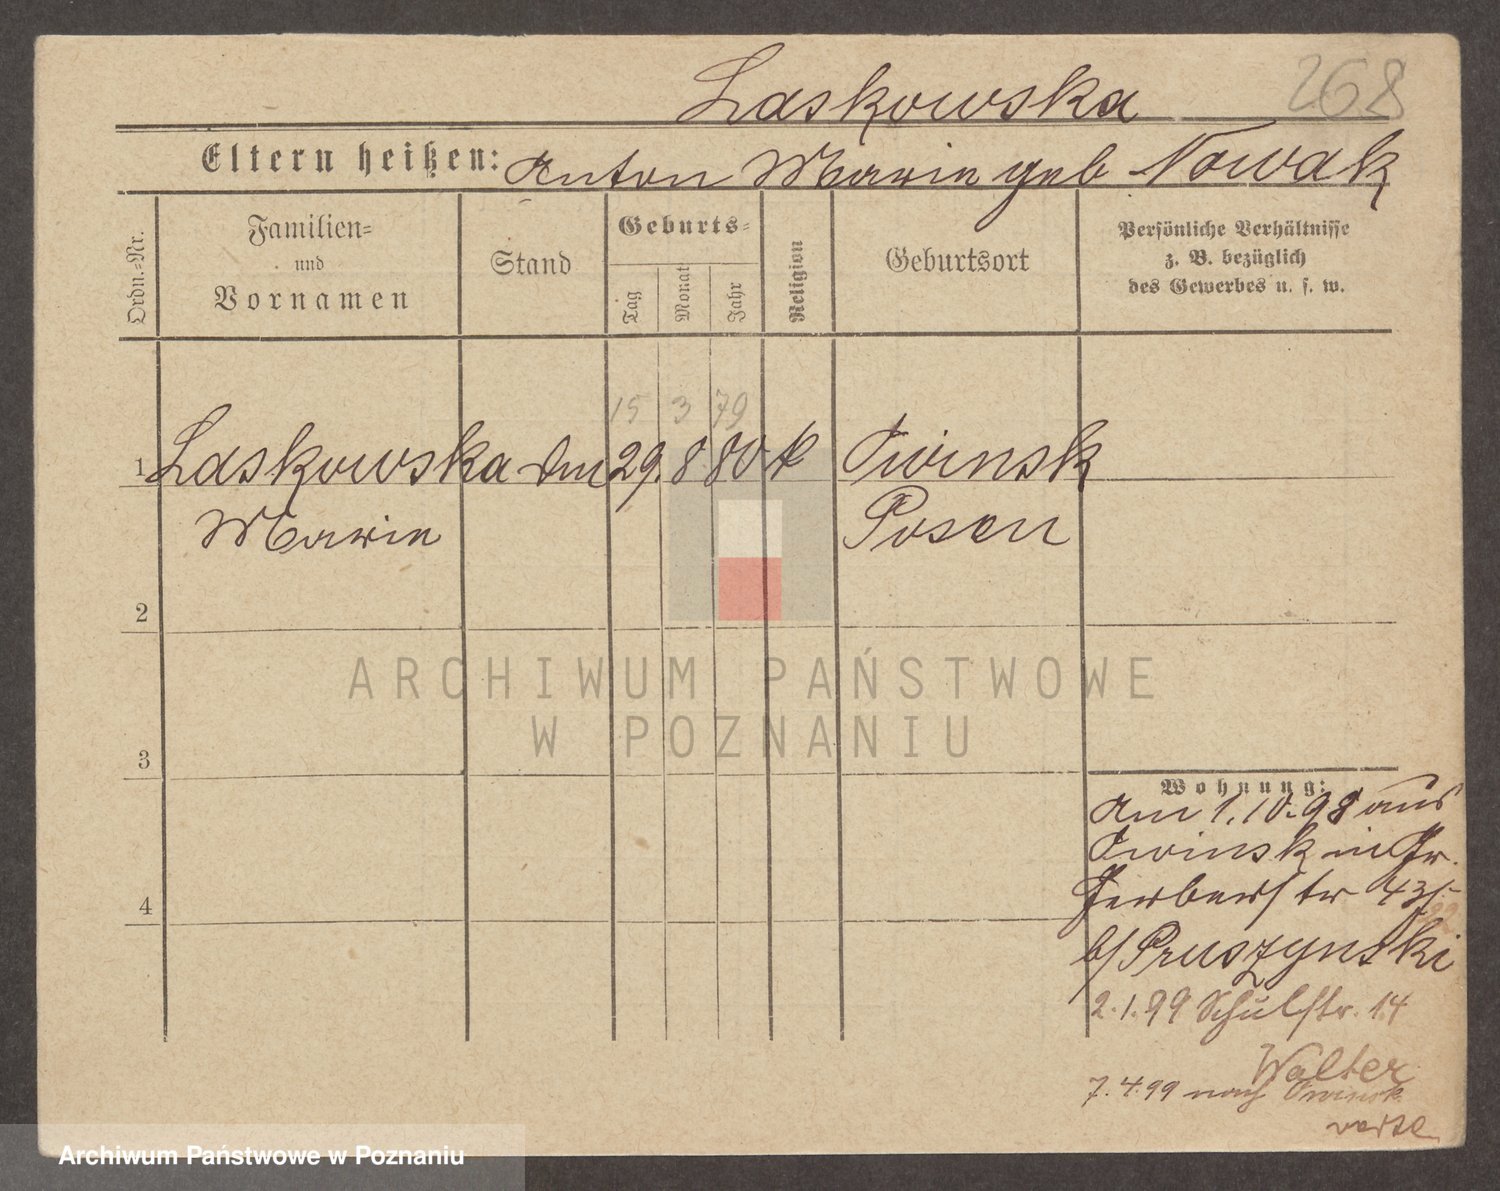 Laskowska 268
Eltern heißen: Anton Marie geb Nowak
Ordn.-Nr.
Familien-
und
Vornamen
Stand
Geburts-
Tag
Monat
Jahr
Religion
Geburtsort
Persönliche Verhältnisse
z. B. bezüglich
des Gewerbes u. s. w.
15 3 79
1 Laskowska 29. 8 80 k Owinsk
Marie Posen
2
ARCHIWUM PAŃSTWOWE
W POZNANIU
3
Wohnung:
Am 1.10.98 aus
Owinsk in Gr.
Gerberstr 43
b/ Pruszynski
2.1.99 Schulstr. 14
Walter
7.4.99 nach Owinsk
4
Archiwum Państwowe w Poznaniu